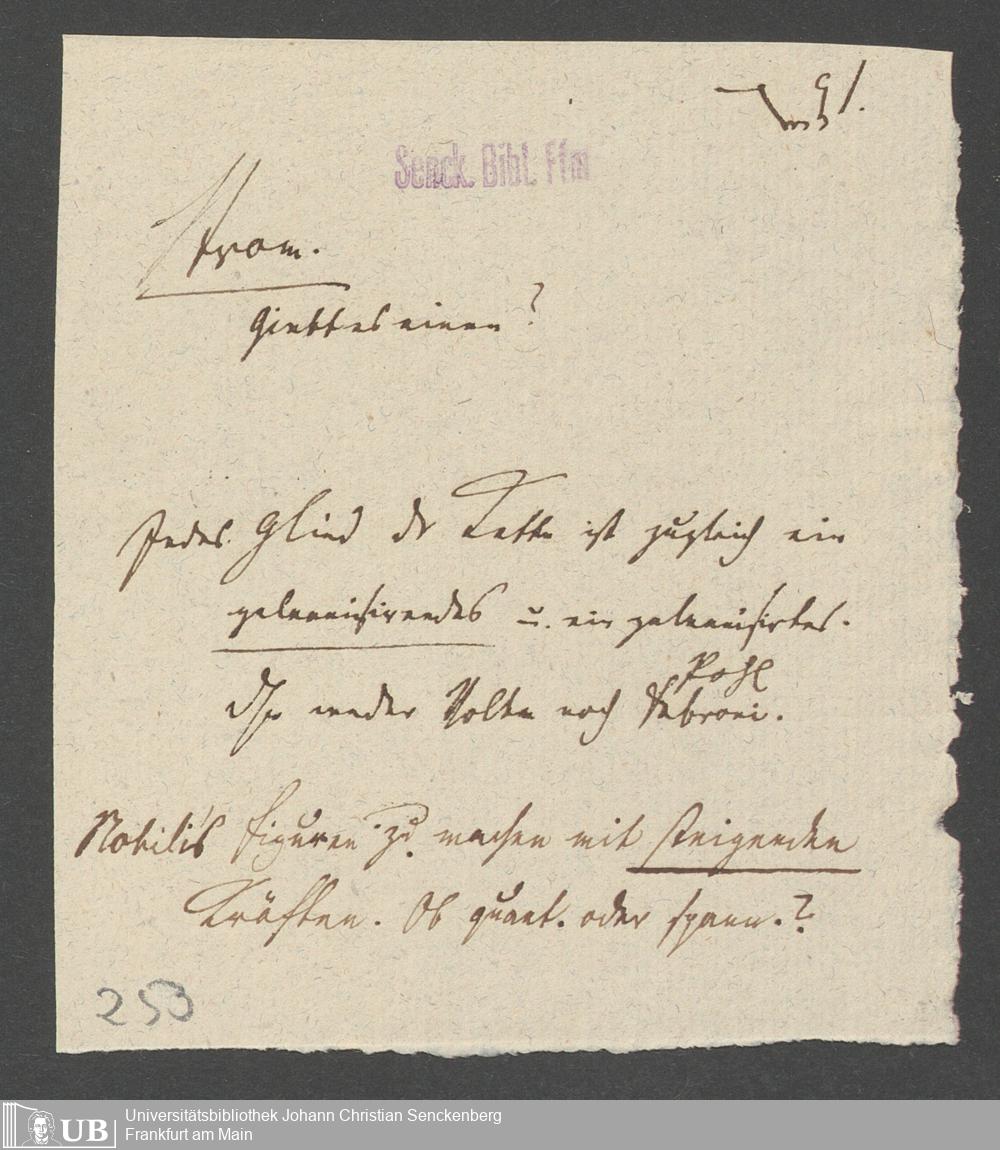 91.
Senck. Bibl. Ffm
Strom.
Giebt es einen?
Jedes Glied der Kette ist zugleich ein
galvanisirendes u. ein galvanisirtes.
Pohl
Ist weder Volta noch Fabroni.
Nobili's Figuren zu machen mit steigenden
Kräften. Ob quant. oder spann.?
253
UB
Universitätsbibliothek Johann Christian Senckenberg
Frankfurt am Main